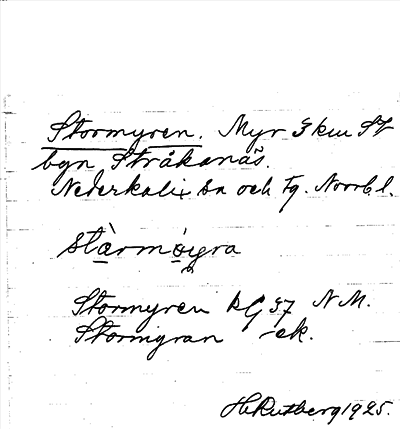 Stormyren. Myr 3 km SV
byn Stråkanäs.
Nederkalix sn och tg. Norrb. l.
stàrmøyra
Stormyren KG 37 NM.
Stormyran -ek.
H Rutberg 1925.